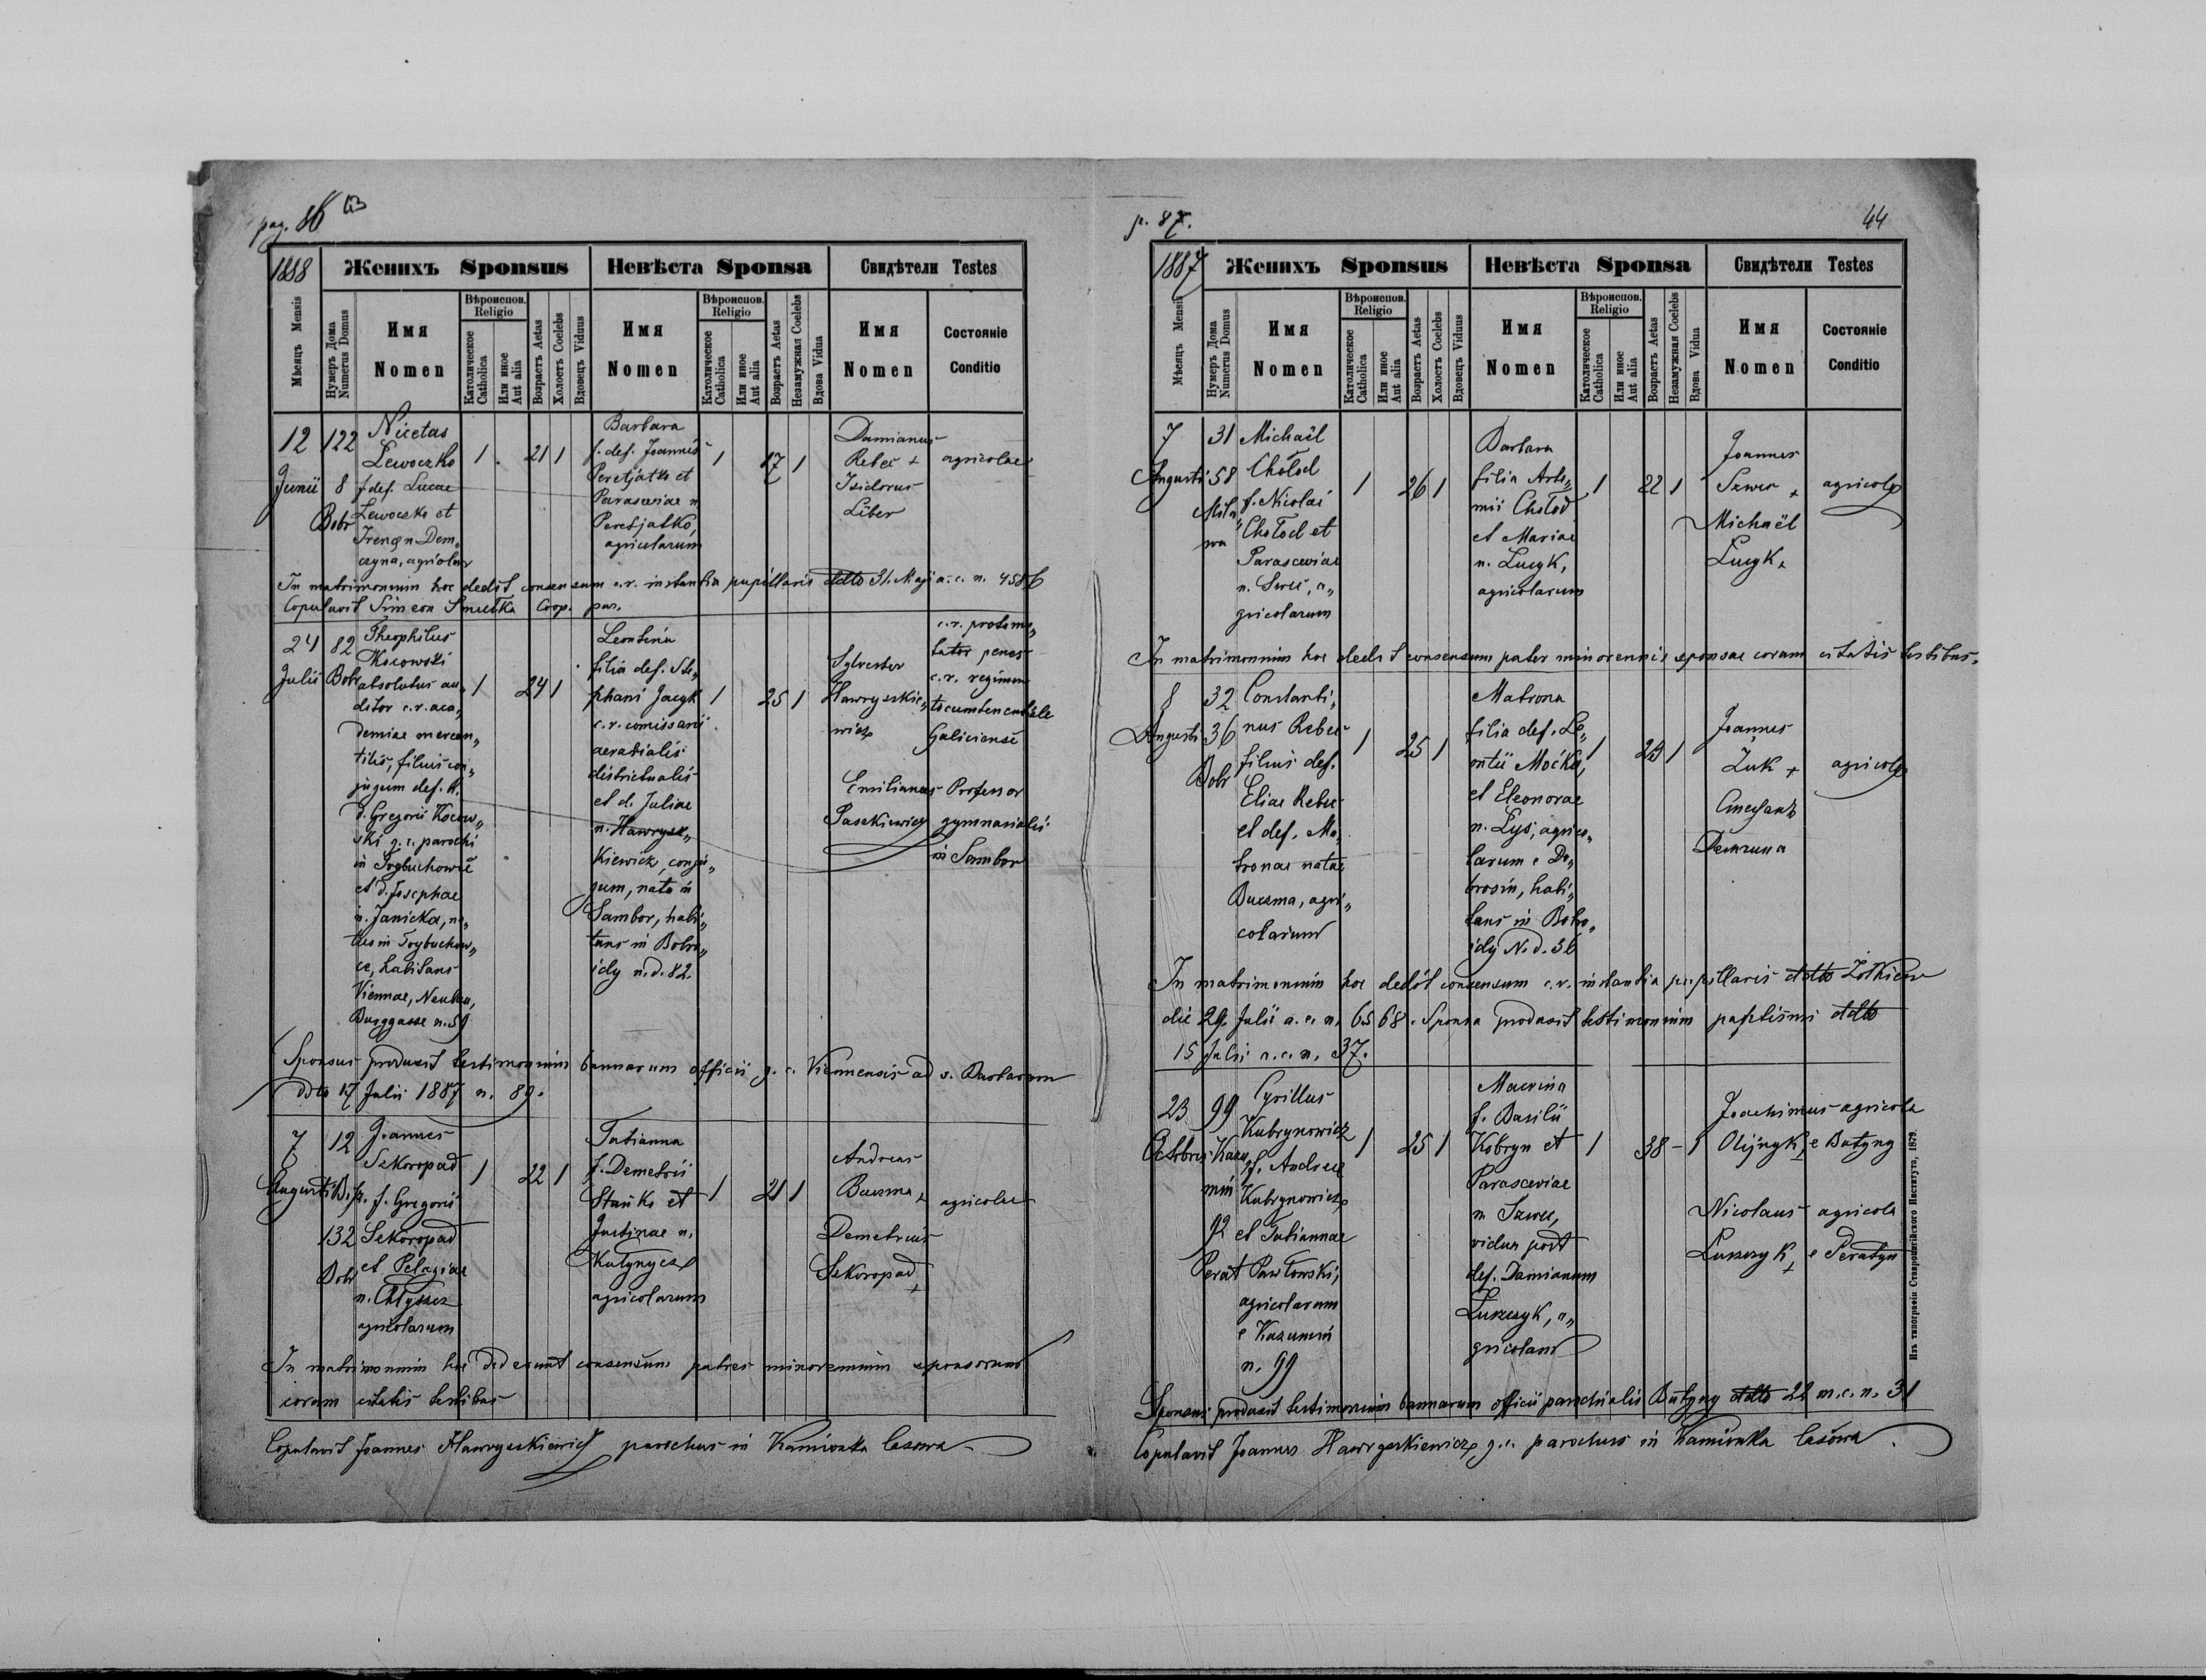 pag. 86 43
1888 Женихъ Sponsus Невѣста Sponsa Свидѣтели Testes
Мѣсяцъ Mensis
Нумеръ Дома Numerus Domus
Имя Nomen
Вѣроиспов. Religio
Католическое Catholica
Или иное Aut alia
Возрастъ Aetas
Холостъ Coelebs
Вдовецъ Viduus
Имя Nomen
Вѣроиспов. Religio
Католическое Catholica
Или иное Aut alia
Возрастъ Aetas
Незамужная Coelebs
Вдова Vidua
Имя Nomen
Состояніе Conditio
12
Junii
122
8
Bobr
Nicetas
Lewoczko
f. def. Lucae
Lewoczko et
Irenæ n Dem„
czyna, agricolar
1 21 1
Barbara
f. def. Joannis
Peretjatko et
Parasceviae n
Peretjatko,
agricolarum
1 17 1
Damianus
Rebec +
Isidorus
Liber
agricolae
In matrimonium hoc dedit consensum c.r. instantia pupillaris ddto 31. Maji a. c. n. 4586
Copulavit Simeon Smulka Coop. par.
24
Julii
82
Bobr
Theophilus
Kocowski
absolutus au„
ditor c.r. aca„
demiae mercan„
tilis, filius con„
jugum def. A.
d. Gregorii Kocow„
ski g. c. parochi
in Trybuchowce
et d. Josephae
n. Janicka, na„
tus in Trybuchow„
ce, habitans
Viennae, Neubau,
Burggasse n. 59
1 24 1
Leontina
filia def. Ste„
phani Jacyk
c.r. comissarii
aerarialis
districtualis
et d. Juliae
n. Hawrysz„
kiewicz, conju„
gum, nata in
Sambor, habi„
tans in Bobro„
idy n. d. 82.
1 25 1
Sylvester
Hawryszkie„
wicz
Emilianus
Paszkiewicz
c.r. protomo„
tator penes
c.r. regimen
locumtenentiale
Galiciense
Professor
gymnasialis
in Sambor
Sponsus produxit testimonium bannorum officii g. c. Viennensis ad s. Barbaram
ddto 17 Julii 1887 n. 89.
7
Augusti
12
B. fr.
132
Bobr
Joannes
Szkoropad
f. Gregorii
Szkoropad
et Pelagiae
n. Chłyszcz
agricolarum
1 22 1
Tatianna
f. Demetrii
Stańko et
Justinae n.
Kułynycz
agricolarum
1 21 1
Andreas
Buczma +
Demetrius
Szkoropad +
agricolae
In matrimonium hoc dederunt consensum patres minorennium sponsorum
coram citatis testibus
Copulavit Joannes Hawryszkiewicz parochus in Kamionka lasowa
p. 87. 44
1887 Женихъ Sponsus Невѣста Sponsa Свидѣтели Testes
Мѣсяцъ Mensis
Нумеръ Дома Numerus Domus
Имя Nomen
Вѣроиспов. Religio
Католическое Catholica
Или иное Aut alia
Возрастъ Aetas
Холостъ Coelebs
Вдовецъ Viduus
Имя Nomen
Вѣроиспов. Religio
Католическое Catholica
Или иное Aut alia
Возрастъ Aetas
Незамужная Coelebs
Вдова Vidua
Имя Nomen
Состояніе Conditio
7
Augusti
31
58
Michaël
Chołod
f. Nicolai
Chołod et
Parasceviae
n. Szwec, a„
gricolarum
1 26 1
Barbara
filia Arte„
mii Chołod
et Mariae
n. Lucyk,
agricolarum
1 22 1
Joannes
Szwec +
Michaël
Lucyk +
agricolae
In matrimonium hoc dedit consensum pater minorennis sponsae coram citatis testibus.
8
Augusti
32
36
Bobr
Constanti„
nus Rebec
filius def.
Eliae Rebec
et def. Ma„
tronae natae
Buczma, agri„
colarum
1 25 1
Matrona
filia def. Le„
ontii Moćka,
et Eleonorae
n. Lys, agrico„
larum e Do„
brosin, habi„
tans in Bobro„
idy N. d. 36
1 24 1
Joannes
Zuk +
Demczuna
agricolae
In matrimonium hoc dedit consensum c. r. instantia pupillaris ddto Zołkiew
die 29. Julii a. c. n. 6568. Sponsa produxit testimonium baptismi ddto
15 Julii a. c. n. 37.
23
Octobris
99
Kazu„
min
92
Perat
Cyrillus
Kubrynowicz
f. Andreae
Kubrynowicz
et Tatiannae
Pawłowski,
agricolarum
e Kazumin
n. 99
1 25 1
Macrina
f. Basilii
Kobryn et
Parasceviae
n Szwec,
vidua post
def. Damianum
Łuszczyk, a„
gricolam
1 38 – 1
Joachimus
Olijnyk +
Nicolaus
Łuszczyk +
agricola
e Butyny
agricola
e Peratyn
Sponsus produxit testimonium bannorum officii parochialis Butyny ddto 22 m. c. n. 31
Copulavit Joannes Hawryszkiewicz, g. c. parochus in Kamionka lasowa.
Изъ типографіи Ставропигійского Института, 1879.